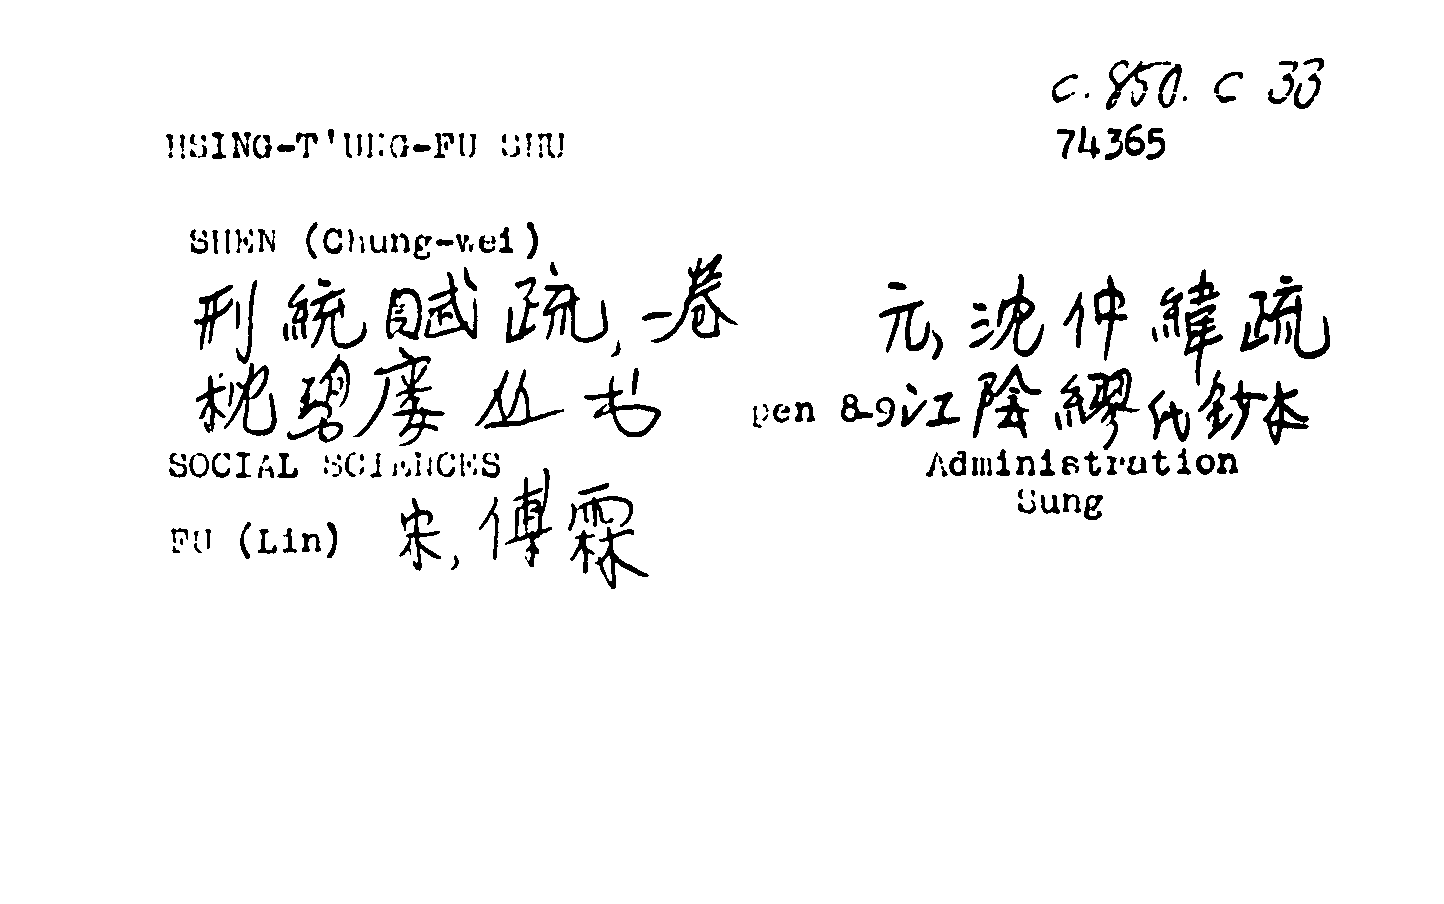 C.850.C 33
HSING-T'UNG-FU SHU
74365
SHEN (Chung-wei)
刑統賦疏,一卷 元,沈仲緯疏
枕碧廔丛书 pen 8-9 江陰繆氏鈔本
SOCIAL SCIENCES Administration
Sung
FU (Lin) 宋,傅霖